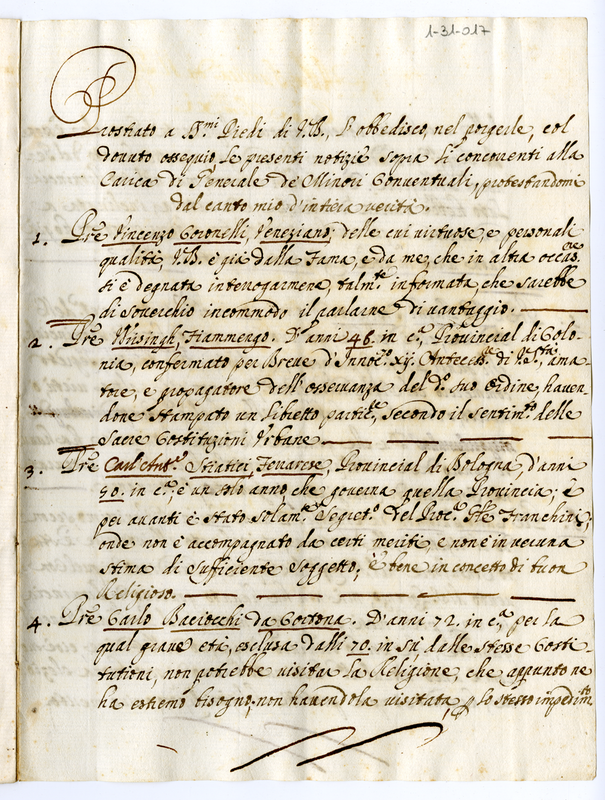 1-31-017
Prostrato a SS.mi Piedi di V.B., L'obbedisco, nel porgerle, col
dovuto ossequio, le presenti notizie sopra li concorrenti alla
Carica di Generale de' Minori Conventuali, protestandomi
dal canto mio d'intiera verità.
1. Pre. Vincenzo Coronelli, Veneziano, delle cui virtuose, e personali
qualità, V.B. è già dalla Fama, e da me, che in altra occas.ne
si è degnata interrogarmene, talm.te informata, che sarebbe
di soverchio incommodo il parlarne di vantaggio.
2. Pre. Bisingh, Fiammengo. D'anni 46. in c.a, Provincial di Colo-
nia, confermato per Breve d'Innoc.o XII. Antecess.e di V.S.tà, ama
tore, e propagatore dell'osservanza del d.o suo Ordine, haven-
done stampato un libretto partic.re, secondo il sentim.to delle
Sacre Costituzioni Urbane
3. Pre. Carl'Ant.o Striatici, Ferrarese, Provincial di Bologna, d'anni
50. in c.a; è un solo anno, che governa quella Provincia; e
per avanti è stato solam.te Segret.o del Proc.o Gle Franchini;
onde non è accompagnato da certi meriti, e non è in veruna
stima di sufficiente soggetto; è bene in concetto di buon
Religioso.
4. Pre. Carlo Baciocchi da Cortona. D'anni 72. in c.a, per la
qual grave età, esclusa dalli 70. in sù dalle stesse Costi-
tutioni, non potrebbe visitar la Religione, che appunto ne
ha estremo bisogno, non havendola visitata, p lo stesso impedim.to